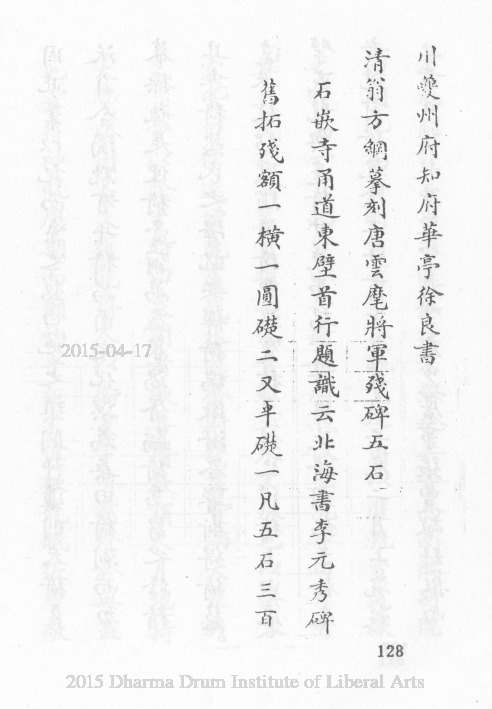 川夔州府知府華亭徐良書
清翁方綱摹刻唐雲麾將軍殘碑五石
石嵌寺甬道東壁首行題識云北海書李元秀碑
舊拓殘額一橫一圓礎二又平礎一凡五石三百
2015-04-17
128
2015 Dharma Drum Institute of Liberal Arts